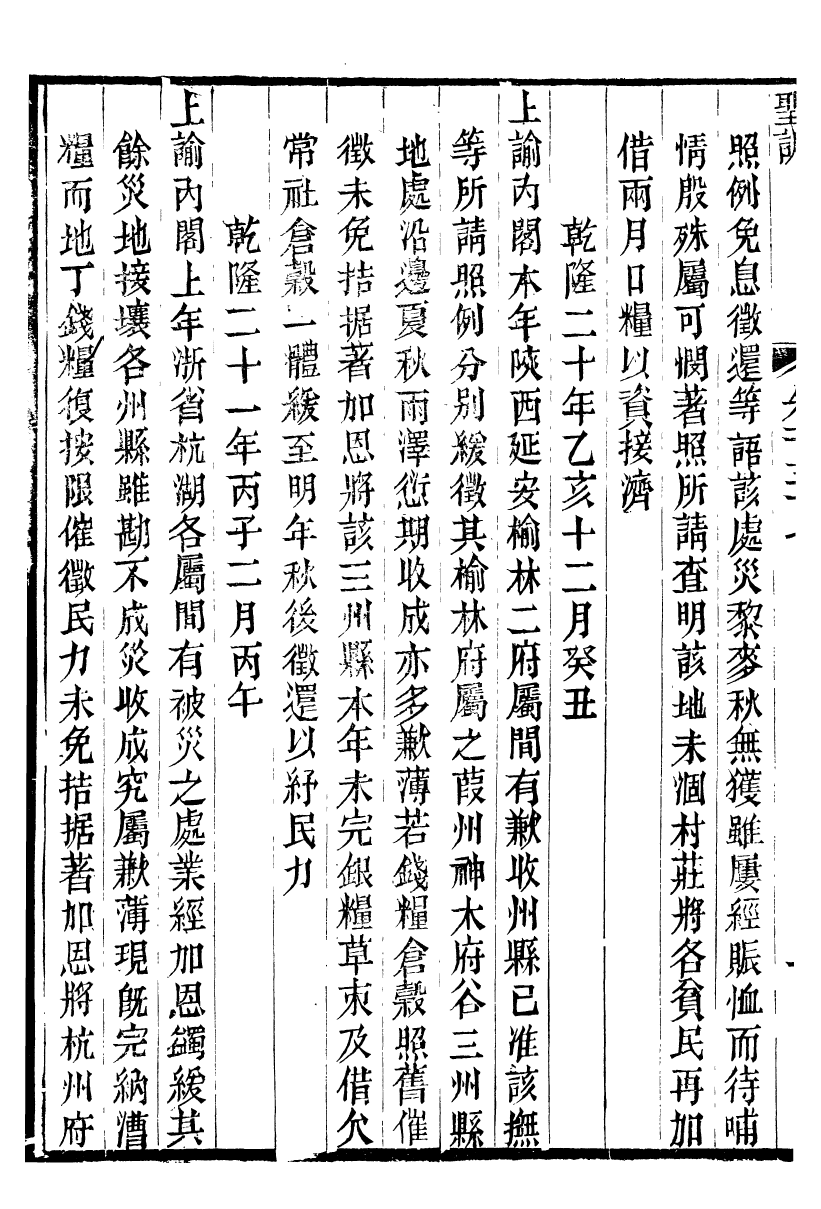 聖訓
照例免息徵還等語該處災黎麥秋無獲雖屢經賑恤而待哺
情殷殊屬可憫著照所請查明該地未涸村莊將各貧民再加
借兩月口糧以資接濟
乾隆二十年乙亥十二月癸丑
上諭內閣本年陝西延安榆林二府屬間有歉收州縣已准該撫
等所請照例分別緩徵其榆林府屬之葭州神木府谷三州縣
地處沿邊夏秋雨澤愆期收成亦多歉薄若錢糧倉穀照舊催
徵未免拮据著加恩將該三州縣本年未完銀糧草束及借欠
常社倉穀一體緩至明年秋後徵還以紓民力
乾隆二十一年丙子二月丙午
上諭內閣上年浙省杭湖各屬間有被災之處業經加恩蠲緩其
餘災地接壤各州縣雖勘不成災收成究屬歉薄現旣完納漕
糧而地丁錢糧復按限催徵民力未免拮据著加恩將杭州府